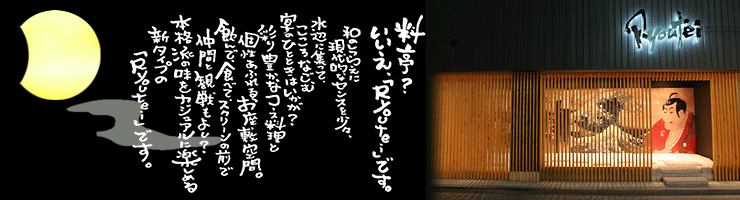 料亭？
いいえ、「Ryutei」です。
和とらった
現代的なセンスを少々、
水辺に集って、
こころなごむ
宴のひとときはいかが？
彩り豊かなコース料理と
個性あふれるお座敷空間。
飲んで、食べて、スクリーンの前で
仲間と観戦もよし？
本格派の味をカジュアルに楽しめる
新タイプの
「Ryutei」です。
Ryoutei